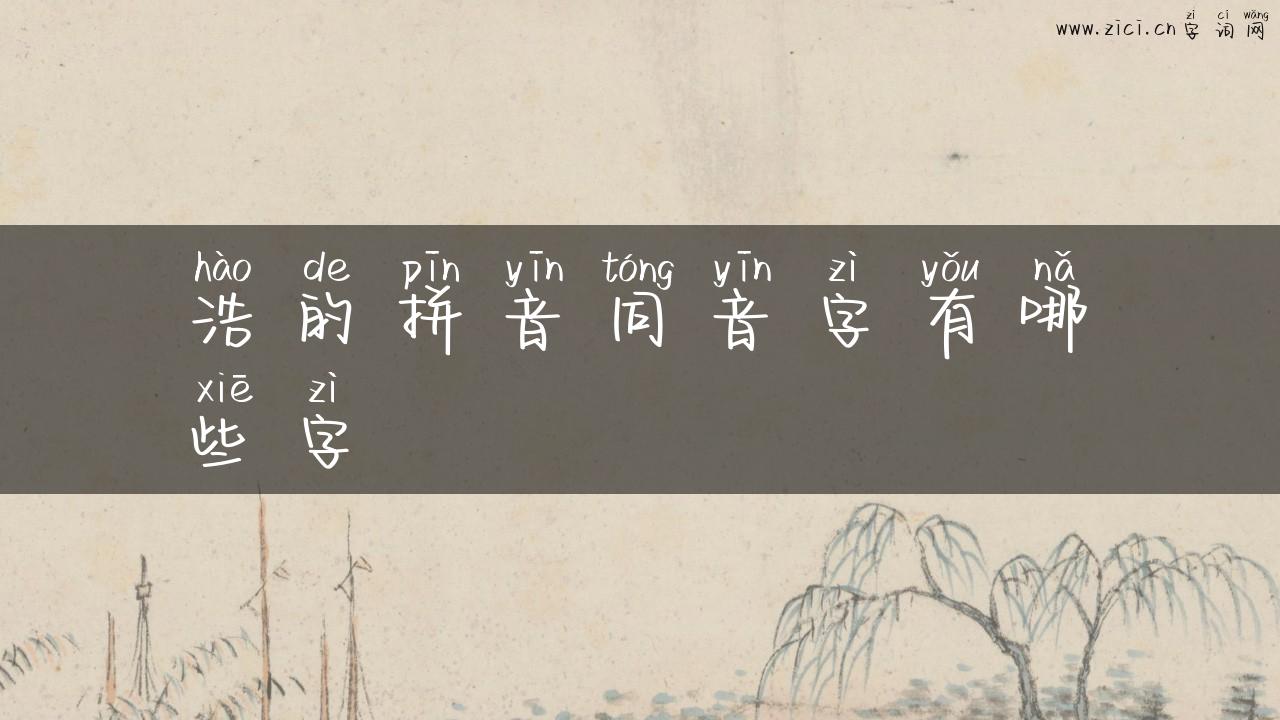 zì cí wǎng
www.zici.cn 字词网
hào de pīn yīn tóng yīn zì yǒu nǎ
浩的拼音同音字有哪
xiē zì
些字